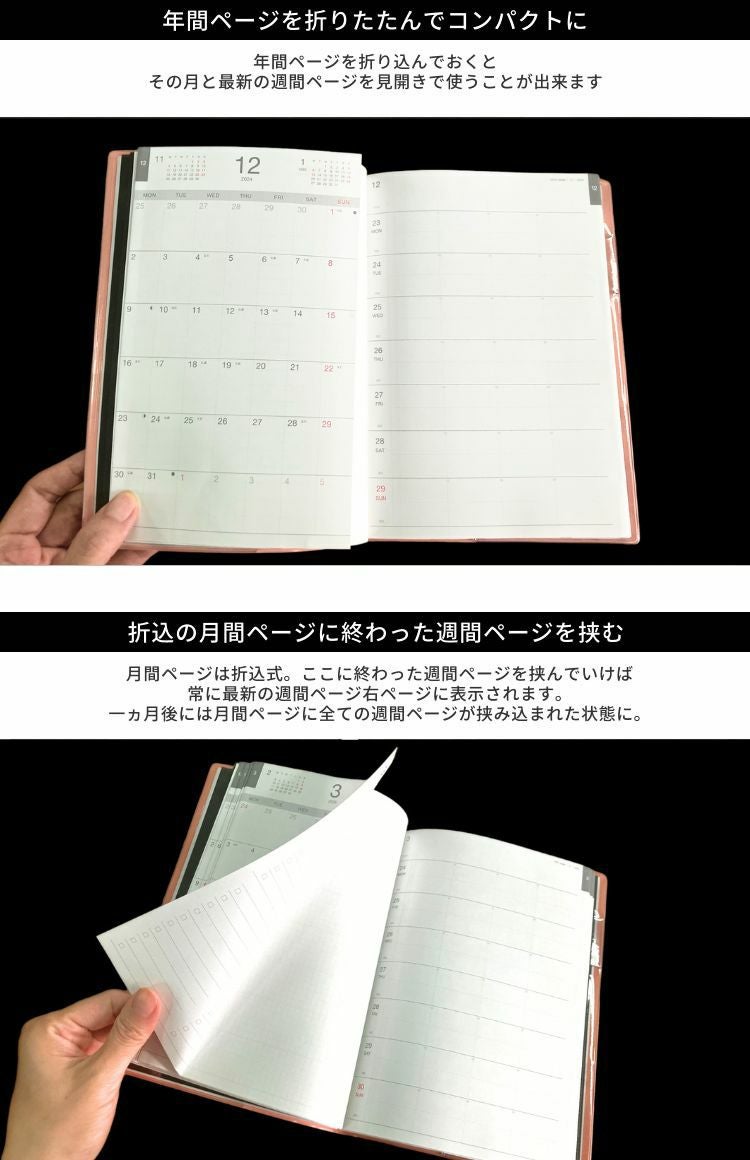 年間ページを折りたたんでコンパクトに
年間ページを折り込んでおくと
その月と最新の週間ページを見開きで使うことが出来ます
12
11
12
2024
1
12
12
MON TUE WED THU FRI SAT SUN
25 26 27 28 29 30 1
2 3 4 5 6 7 8
9 10 11 12 13 14 15
16 17 18 19 20 21 22
23 24 25 26 27 28 29
30 31 1 2 3 4 5
23
MON
24
TUE
25
WED
26
THU
27
FRI
28
SAT
29
SUN
折込の月間ページに終わった週間ページを挟む
月間ページは折込式。ここに終わった週間ページを挟んでいけば
常に最新の週間ページ右ページに表示されます。
一ヵ月後には月間ページに全ての週間ページが挟み込まれた状態に。
3
2
3
MON TUE WED
24 25
3 4
24
25
26
27
28
29
30
SUN